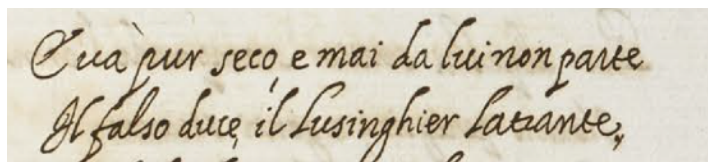 E uà pur seco, e mai da lui non parte
Il falso duce, il lusinghier latrante,